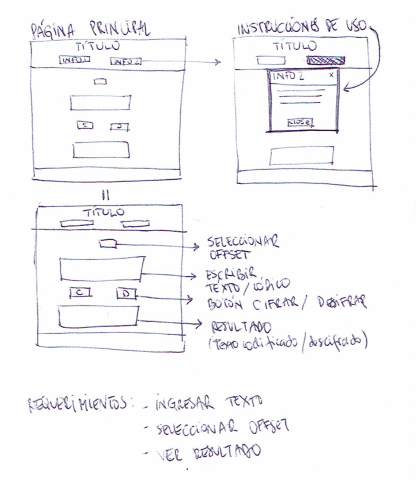 PÁGINA PRINCIPAL
TÍTULO
INFO 1 INFO 2
C D
INSTRUCCIONES DE USO
TÍTULO
INFO 2 X
CLOSE
TÍTULO
C D
SELECCIONAR
OFFSET
ESCRIBIR
TEXTO/CÓDIGO
BOTÓN CIFRAR / DESCIFRAR
RESULTADO
(texto codificado/descifrado)
REQUERIMIENTOS: - INGRESAR TEXTO
- SELECCIONAR OFFSET
- VER RESULTADO